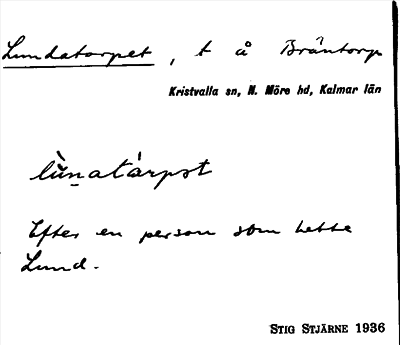 Lundatorpet, t å Bräntorp
Kristvalla sn, N. Möre hd, Kalmar län
lùn̠atárpət
Efter en person som hette
Lund.
STIG STJÄRNE 1936